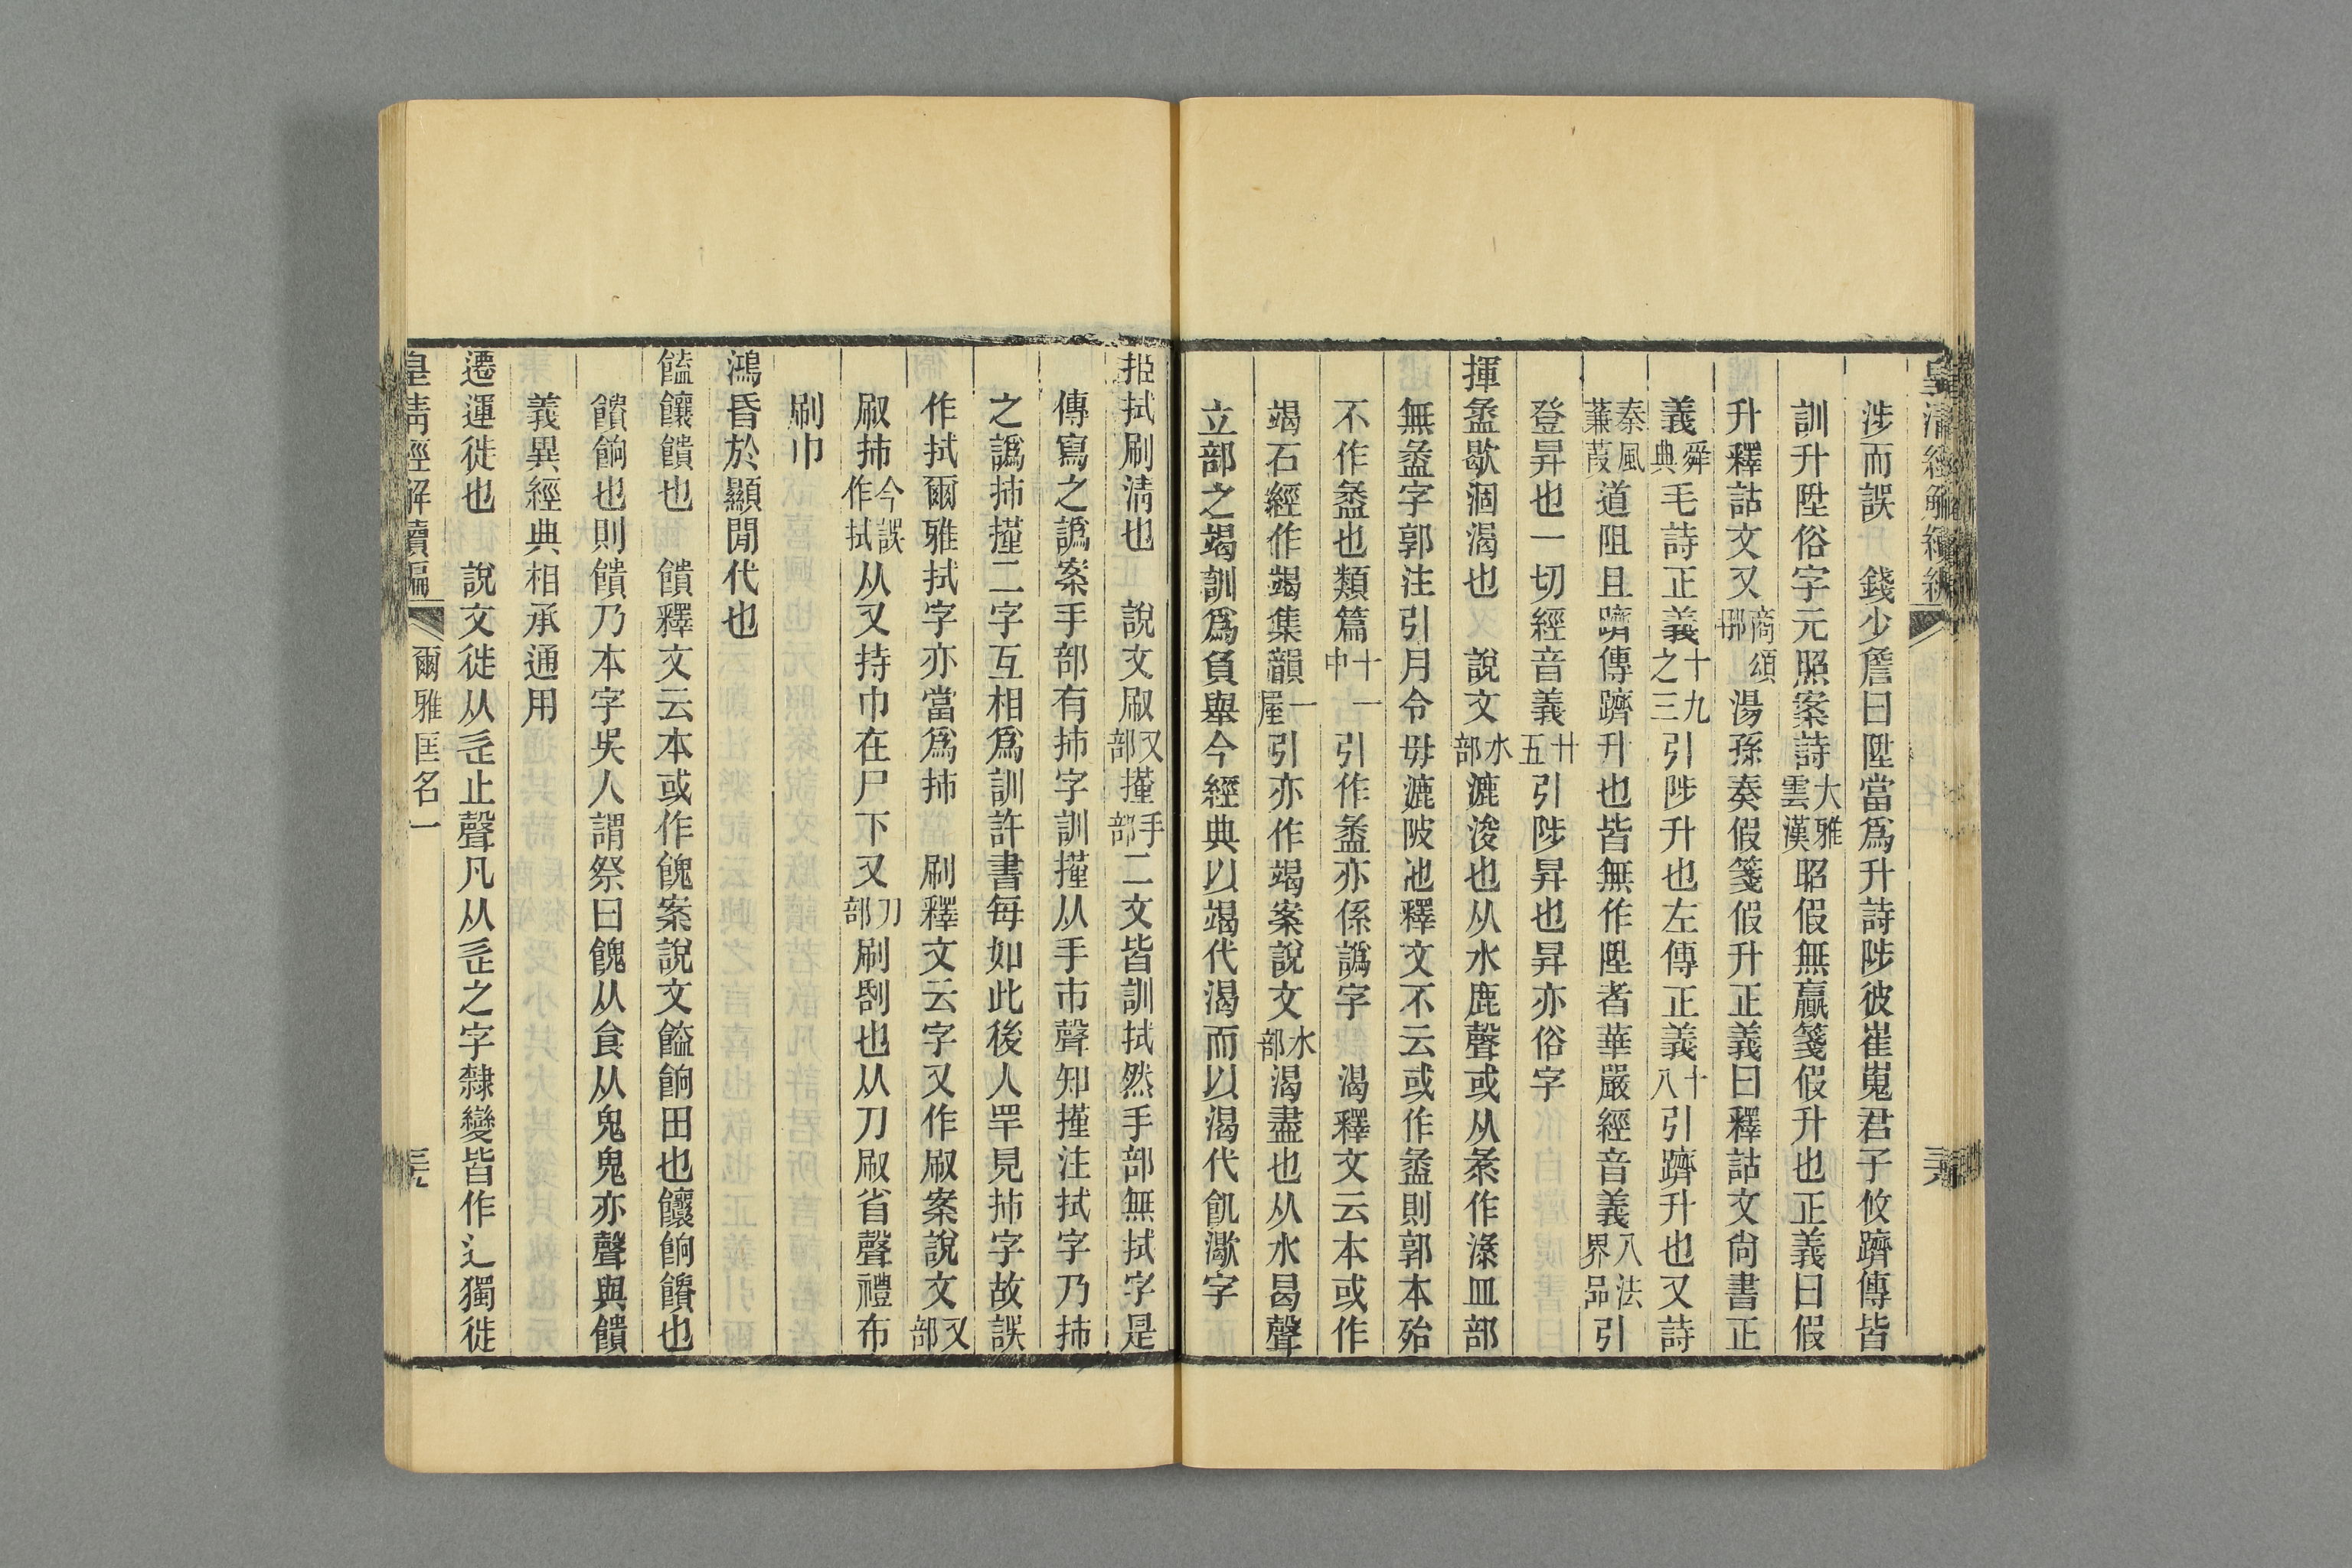 皇清經解續編
涉而誤 錢少詹曰陞當爲升詩陟彼崔嵬君子攸躋傳皆
訓升陞俗字元照案詩大雅雲漢昭假無贏箋假升也正義曰假
升釋詁文又商頌那湯孫奏假箋假升正義曰釋詁文尙書正
義舜典毛詩正義十九之三引陟升也左傳正義十八引躋升也又詩
秦風蒹葭道阻且躋傳躋升也皆無作陞者華嚴經音義八法界品引
登昇也一切經音義廿五引陟昇也昇亦俗字
揮盝歇涸渴也 說文水部漉浚也从水鹿聲或从彔作淥皿部
無盝字郭注引月令毋漉陂池釋文不云或作盝則郭本殆
不作盝也類篇十一中引作盝亦係譌字 渴釋文云本或作
竭石經作竭集韻一屋引亦作竭案說文水部渴盡也从水曷聲
立部之竭訓爲負舉今經典以竭代渴而以渴代飢㵣字
挋拭刷淸也 說文㕞又部㨷手部二文皆訓拭然手部無拭字是
傳寫之譌案手部有抪字訓㨷从手巿聲知㨷注拭字乃抪
之譌抪㨷二字互相爲訓許書每如此後人罕見抪字故誤
作拭爾雅拭字亦當爲抪 刷釋文云字又作㕞案說文又部
㕞抪今誤作拭从又持巾在尸下又刀部刷刮也从刀㕞省聲禮布
刷巾
鴻昏於顯閒代也
饁饟饋也 饋釋文云本或作餽案說文饁餉田也饟餉饋也
饋餉也則饋乃本字吳人謂祭曰餽从食从鬼鬼亦聲與饋
義異經典相承通用
遷運徙也 說文徙从辵止聲凡从辵之字隸變皆作辶獨徙
皇淸經解續編 爾雅匡名一